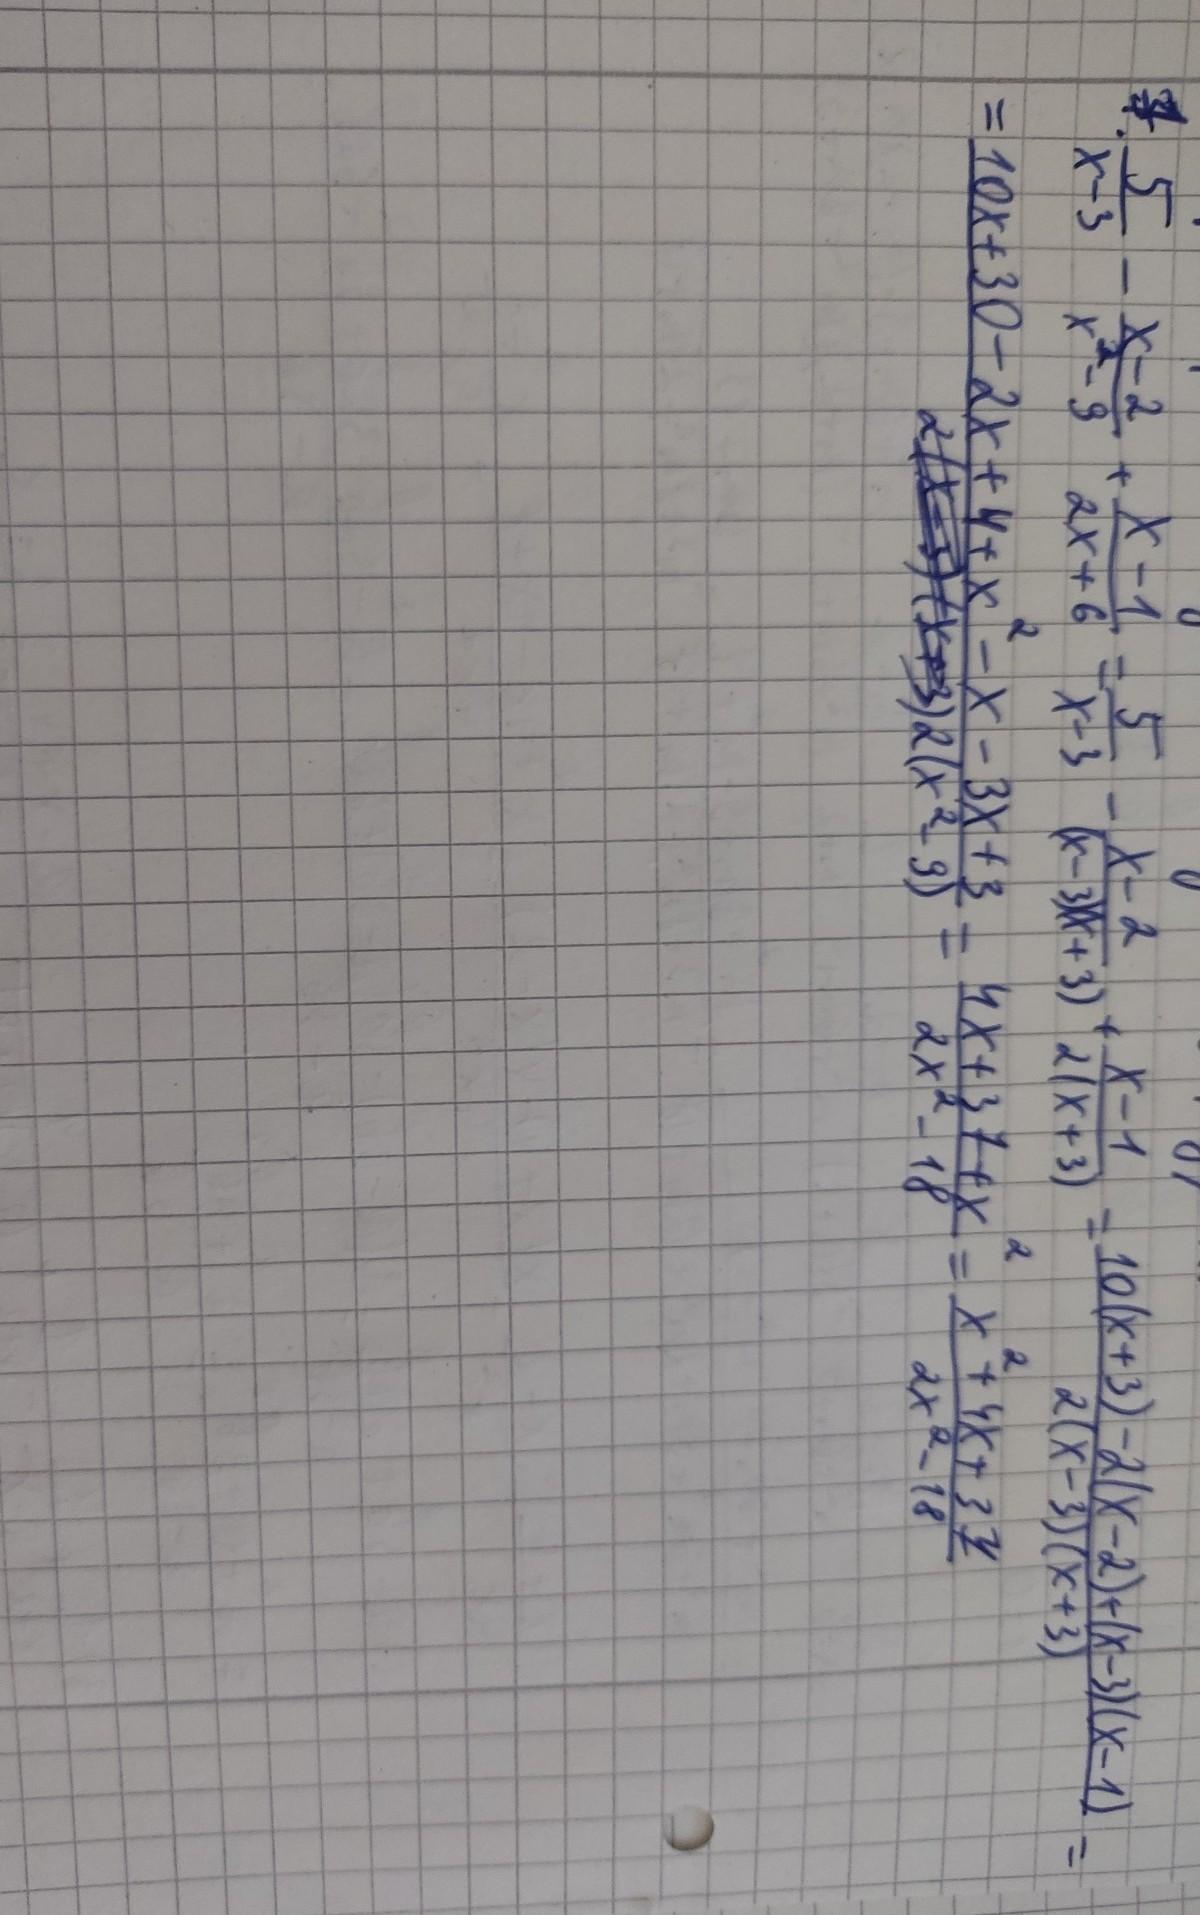 7. 5/(x-3) - (x-2)/(x²-9) + (x-1)/(2x+6) = 5/(x-3) - (x-2)/((x-3)(x+3)) + (x-1)/(2(x+3)) = (10(x+3)-2(x-2)+(x-3)(x-1))/(2(x-3)(x+3)) =
= (10x+30-2x+4+x²-x-3x+3)/(2(x²-9)) = (4x+37+x²)/(2x²-18) = (x²+4x+37)/(2x²-18)